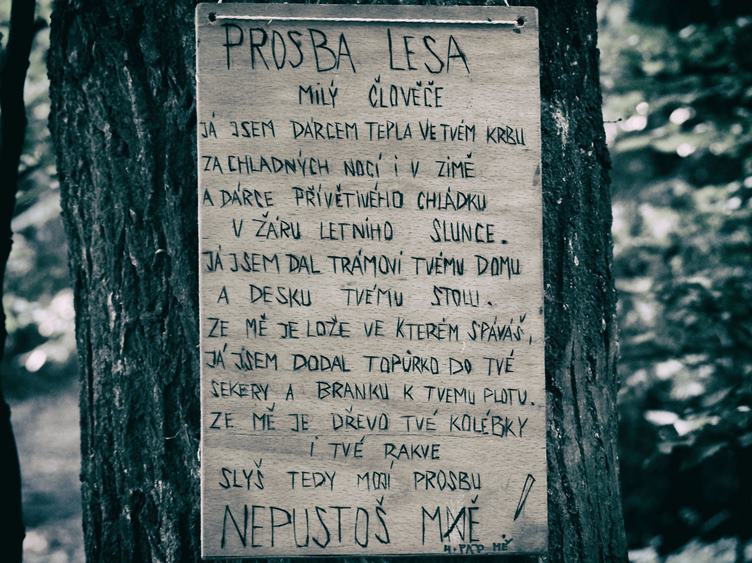 PROSBA LESA
MILÝ ČLOVĚČE
JÁ JSEM DÁRCEM TEPLA VE TVÉM KRBU
ZA CHLADNÝCH NOCÍ I V ZIMĚ
A DÁRCE PŘÍVĚTIVÉHO CHLÁDKU
V ŽÁRU LETNÍHO SLUNCE.
JÁ JSEM DAL TRÁMOVÍ TVÉMU DOMU
A DESKU TVÉMU STOLU.
ZE MĚ JE LOŽE VE KTERÉM SPÁVÁŠ,
JÁ JSEM DODAL TOPŮRKO DO TVÉ
SEKERY A BRANKU K TVEMU PLOTU.
ZE MĚ JE DŘEVO TVÉ KOLÉBKY
I TVÉ RAKVE
SLYŠ TEDY MOJÍ PROSBU
NEPUSTOŠ MNĚ!
4. PÁD MĚ